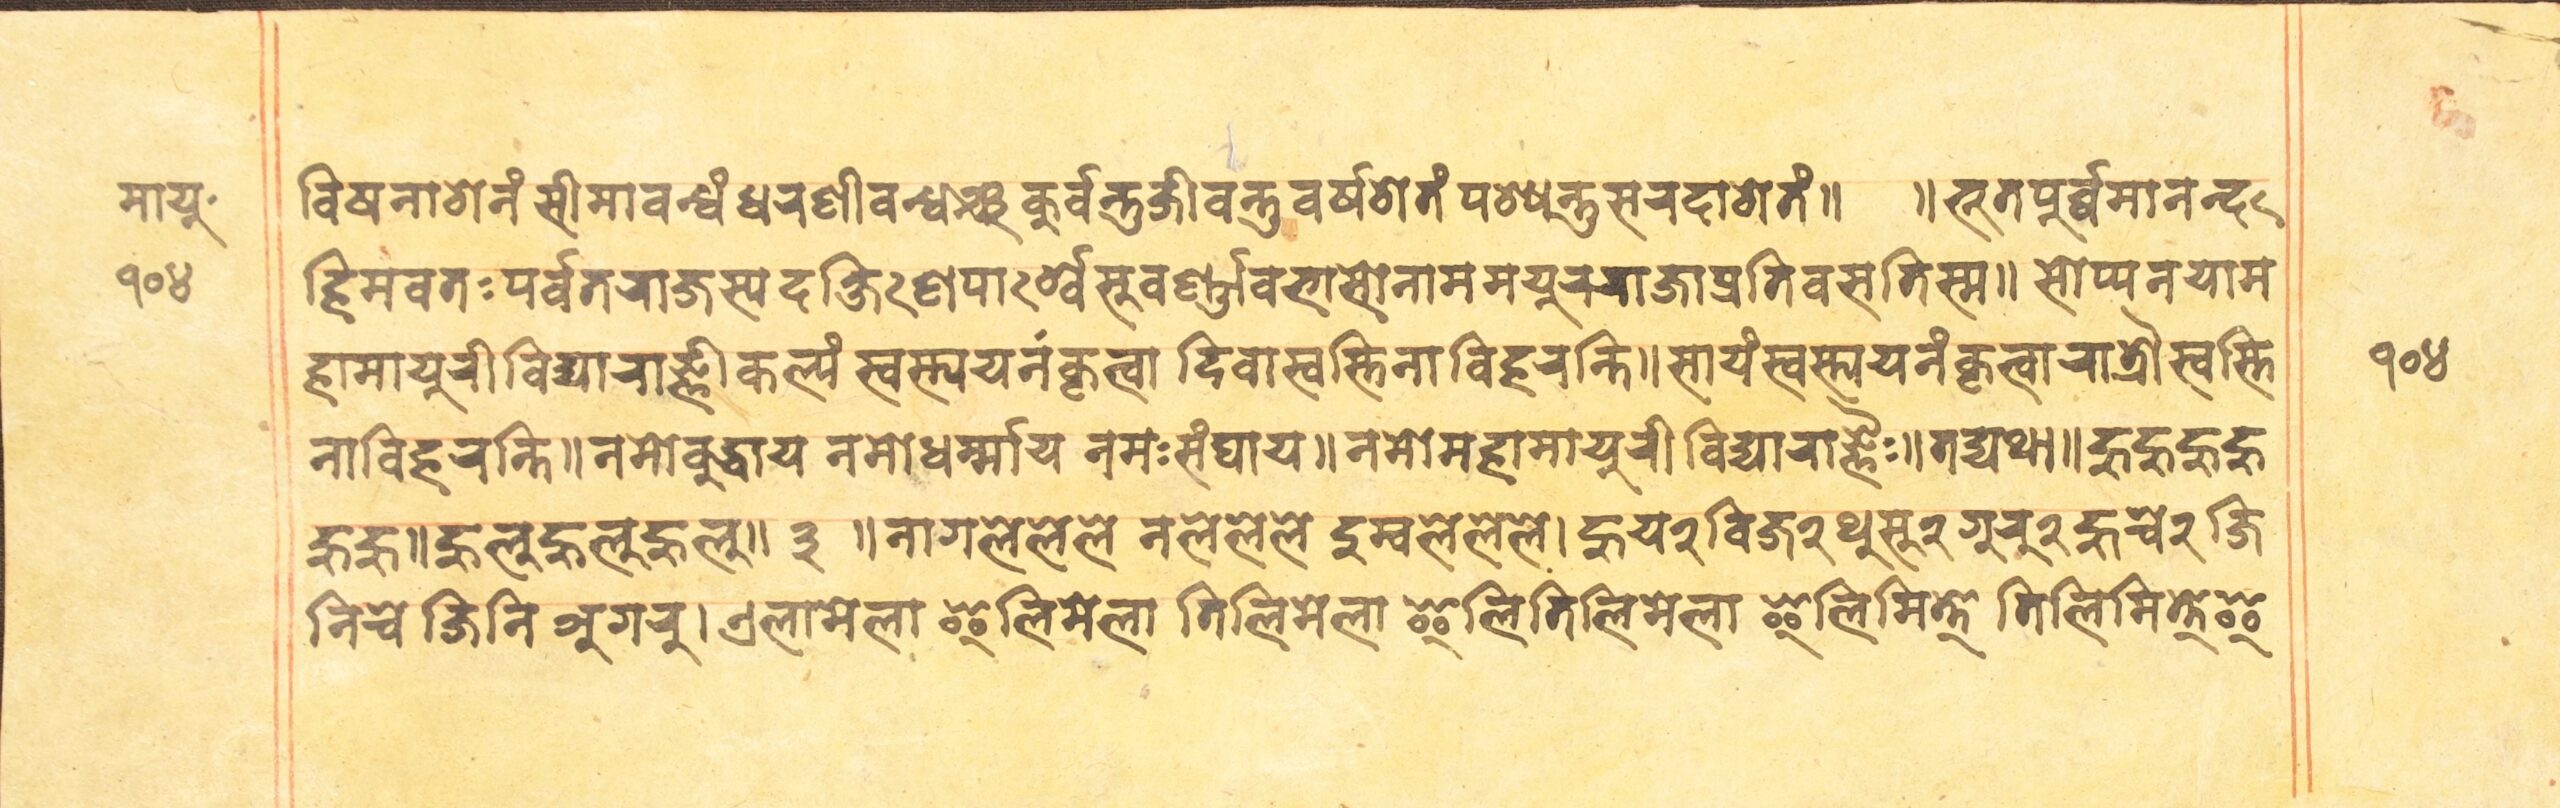 मायु॰
१०४
विषनाशेनं सीमावन्धं धरणीवन्धञ्च कुर्वन्तु जीवन्तु वर्षशेतं पश्यन्तु सरदाशेतं॥ ॥ भूतपूर्व्वमानन्द
हिमवतः पर्व्वतराजस्य दक्षिणपार्श्वे सुवर्ण्णावभासो नाम मयुरराजा प्रतिवसति स्म॥ सोप्यनयाम
हामायुरीविद्याराज्ञी कल्यं स्वस्त्ययनं कृत्वा दिवा स्वस्तिना विहरन्ति॥ सायं स्वस्त्ययनं कृत्वा रात्रौ स्वस्ति
१०४
ना विहरन्ति॥ नमो वुद्धाय नमो धर्म्माय नमः संघाय॥ नमो महामायुरीविद्याराज्ञैः॥ तद्यथा॥ हुहुहुहु
हुहु॥ हुलुहुलुहुलु॥ ३ ॥ नागलेलेले नलेलेले दुम्वलेलेले। हुय२ विज२ थुसु२ गुरु२ हुच्चे२ जि
निच्चे जिनि अगरु। एलामेला इलिमेला तिलिमेला इलितिलिमेला इलिमित्ते तिलिमित्ते इ